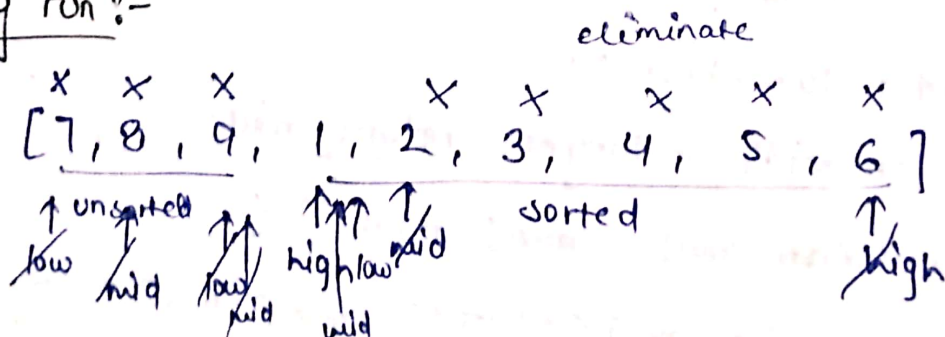 run :-
eliminate
x x x x x x x x
[7, 8, 9, 1, 2, 3, 4, 5, 6]
unsorted sorted
low mid low mid high low mid mid high